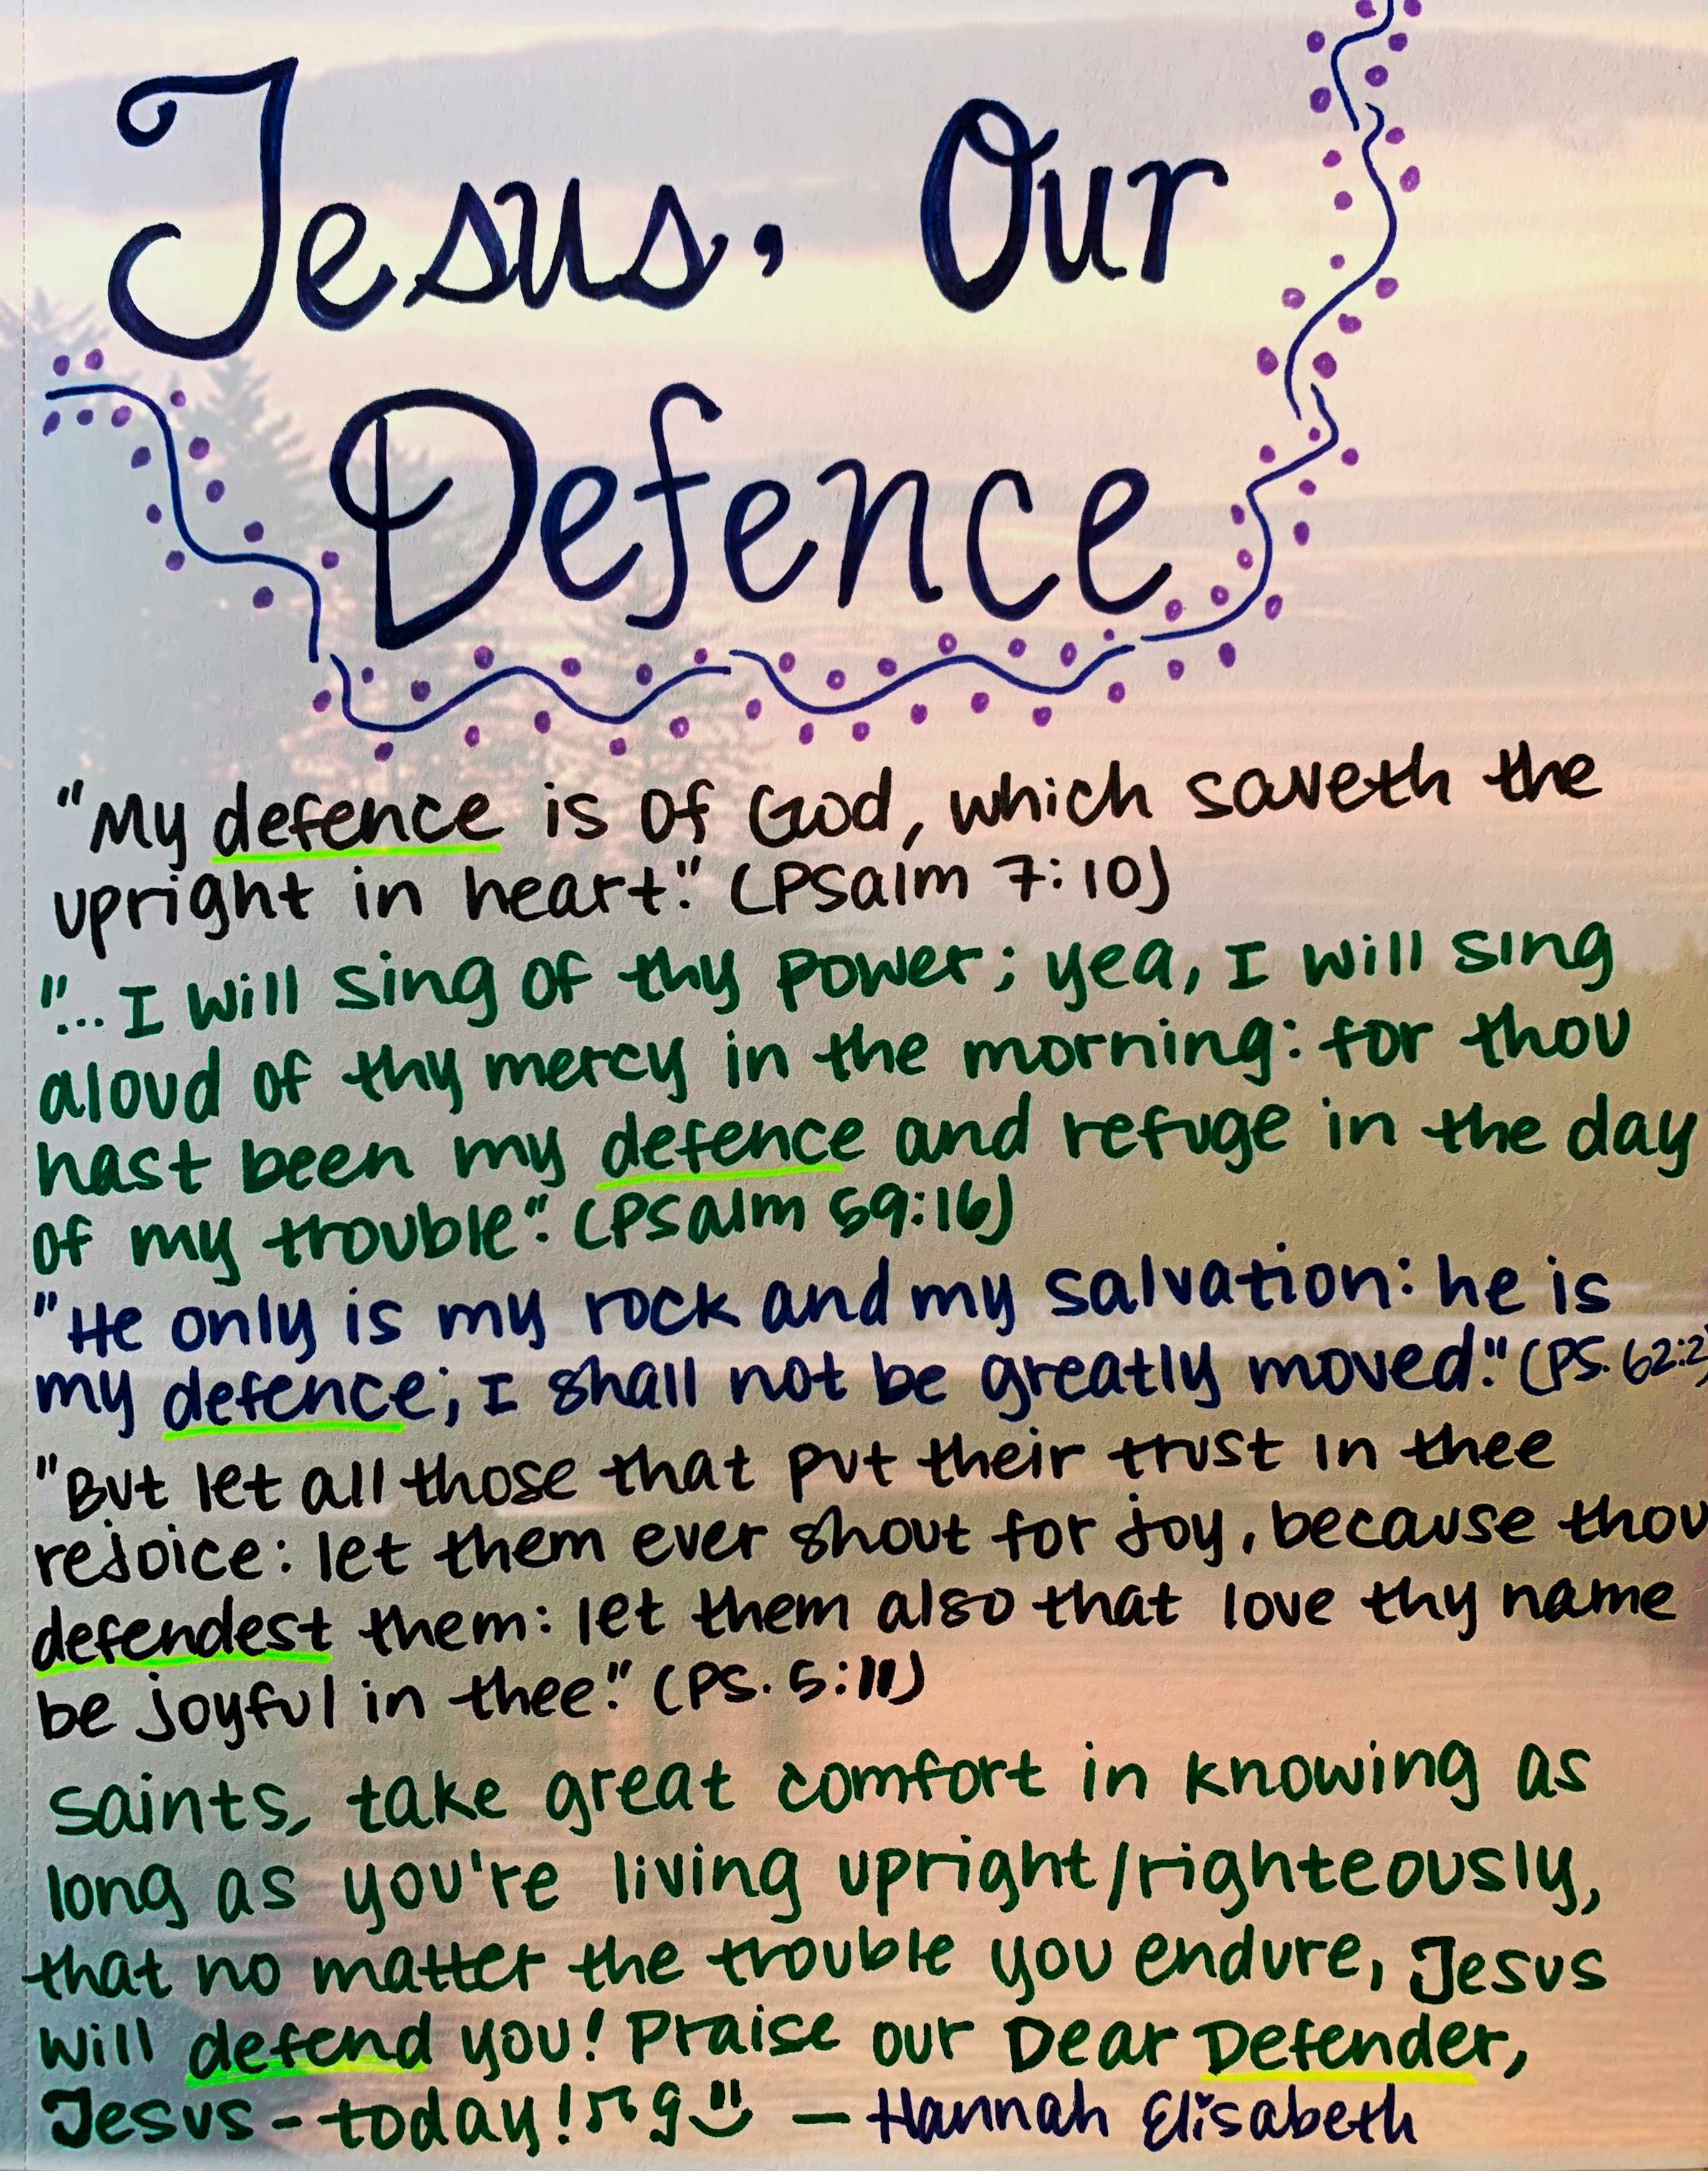 Jesus, Our
Defence
"My defence is of God, which saveth the
upright in heart." (Psalm 7:10)
"...I will sing of thy power; yea, I will sing
aloud of thy mercy in the morning: for thou
hast been my defence and refuge in the day
of my trouble." (Psalm 59:16)
"He only is my rock and my salvation: he is
my defence; I shall not be greatly moved." (Ps. 62:2)
"But let all those that put their trust in thee
rejoice: let them ever shout for joy, because thou
defendest them: let them also that love thy name
be joyful in thee." (Ps. 5:11)
Saints, take great comfort in knowing as
long as you're living upright/righteously,
that no matter the trouble you endure, Jesus
will defend you! Praise our Dear Defender,
Jesus - today! — Hannah Elisabeth